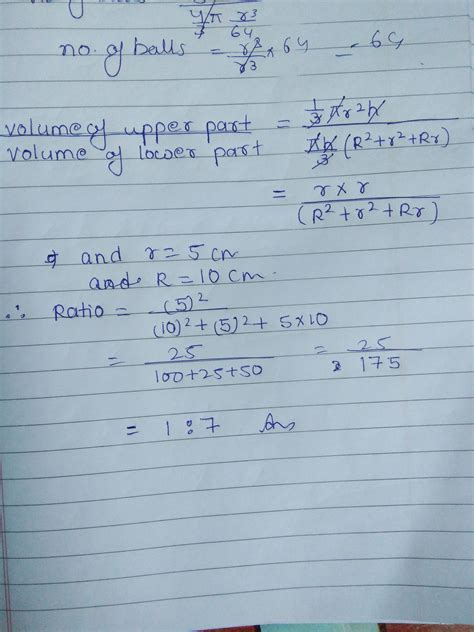 4/3 π r³/64
no. of balls = r³/r³ × 64 = 64
volume of upper part / volume of lower part = 1/3 π r² h / πh/3 (R² + r² + Rr)
= r × r / (R² + r² + Rr)
and r = 5 cm
and R = 10 cm.
∴ Ratio = (5)² / (10)² + (5)² + 5×10
= 25 / 100+25+50 = 25 / 175
= 1 : 7 Ans